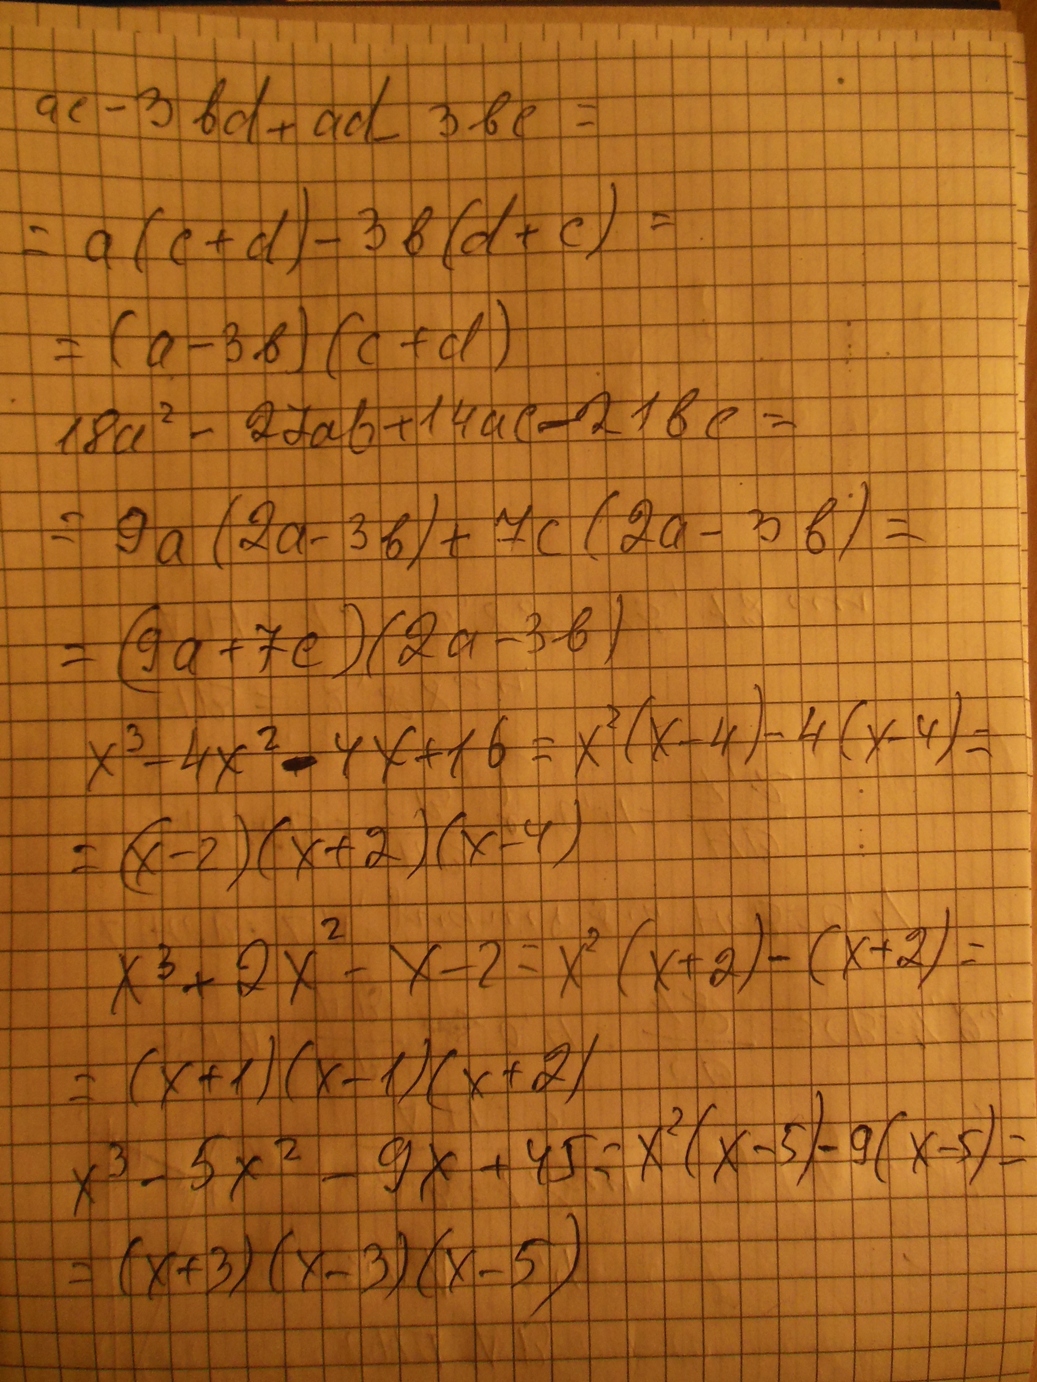 ac - 3bd + ad - 3bc =
= a(c + d) - 3b(d + c) =
= (a - 3b)(c + d)
18a² - 27ab + 14ac - 21bc =
= 9a(2a - 3b) + 7c(2a - 3b) =
= (9a + 7c)(2a - 3b)
x³ - 4x² - 4x + 16 = x²(x - 4) - 4(x - 4) =
= (x - 2)(x + 2)(x - 4)
x³ + 2x² - x - 2 = x²(x + 2) - (x + 2) =
= (x + 1)(x - 1)(x + 2)
x³ - 5x² - 9x + 45 = x²(x - 5) - 9(x - 5) =
= (x + 3)(x - 3)(x - 5)